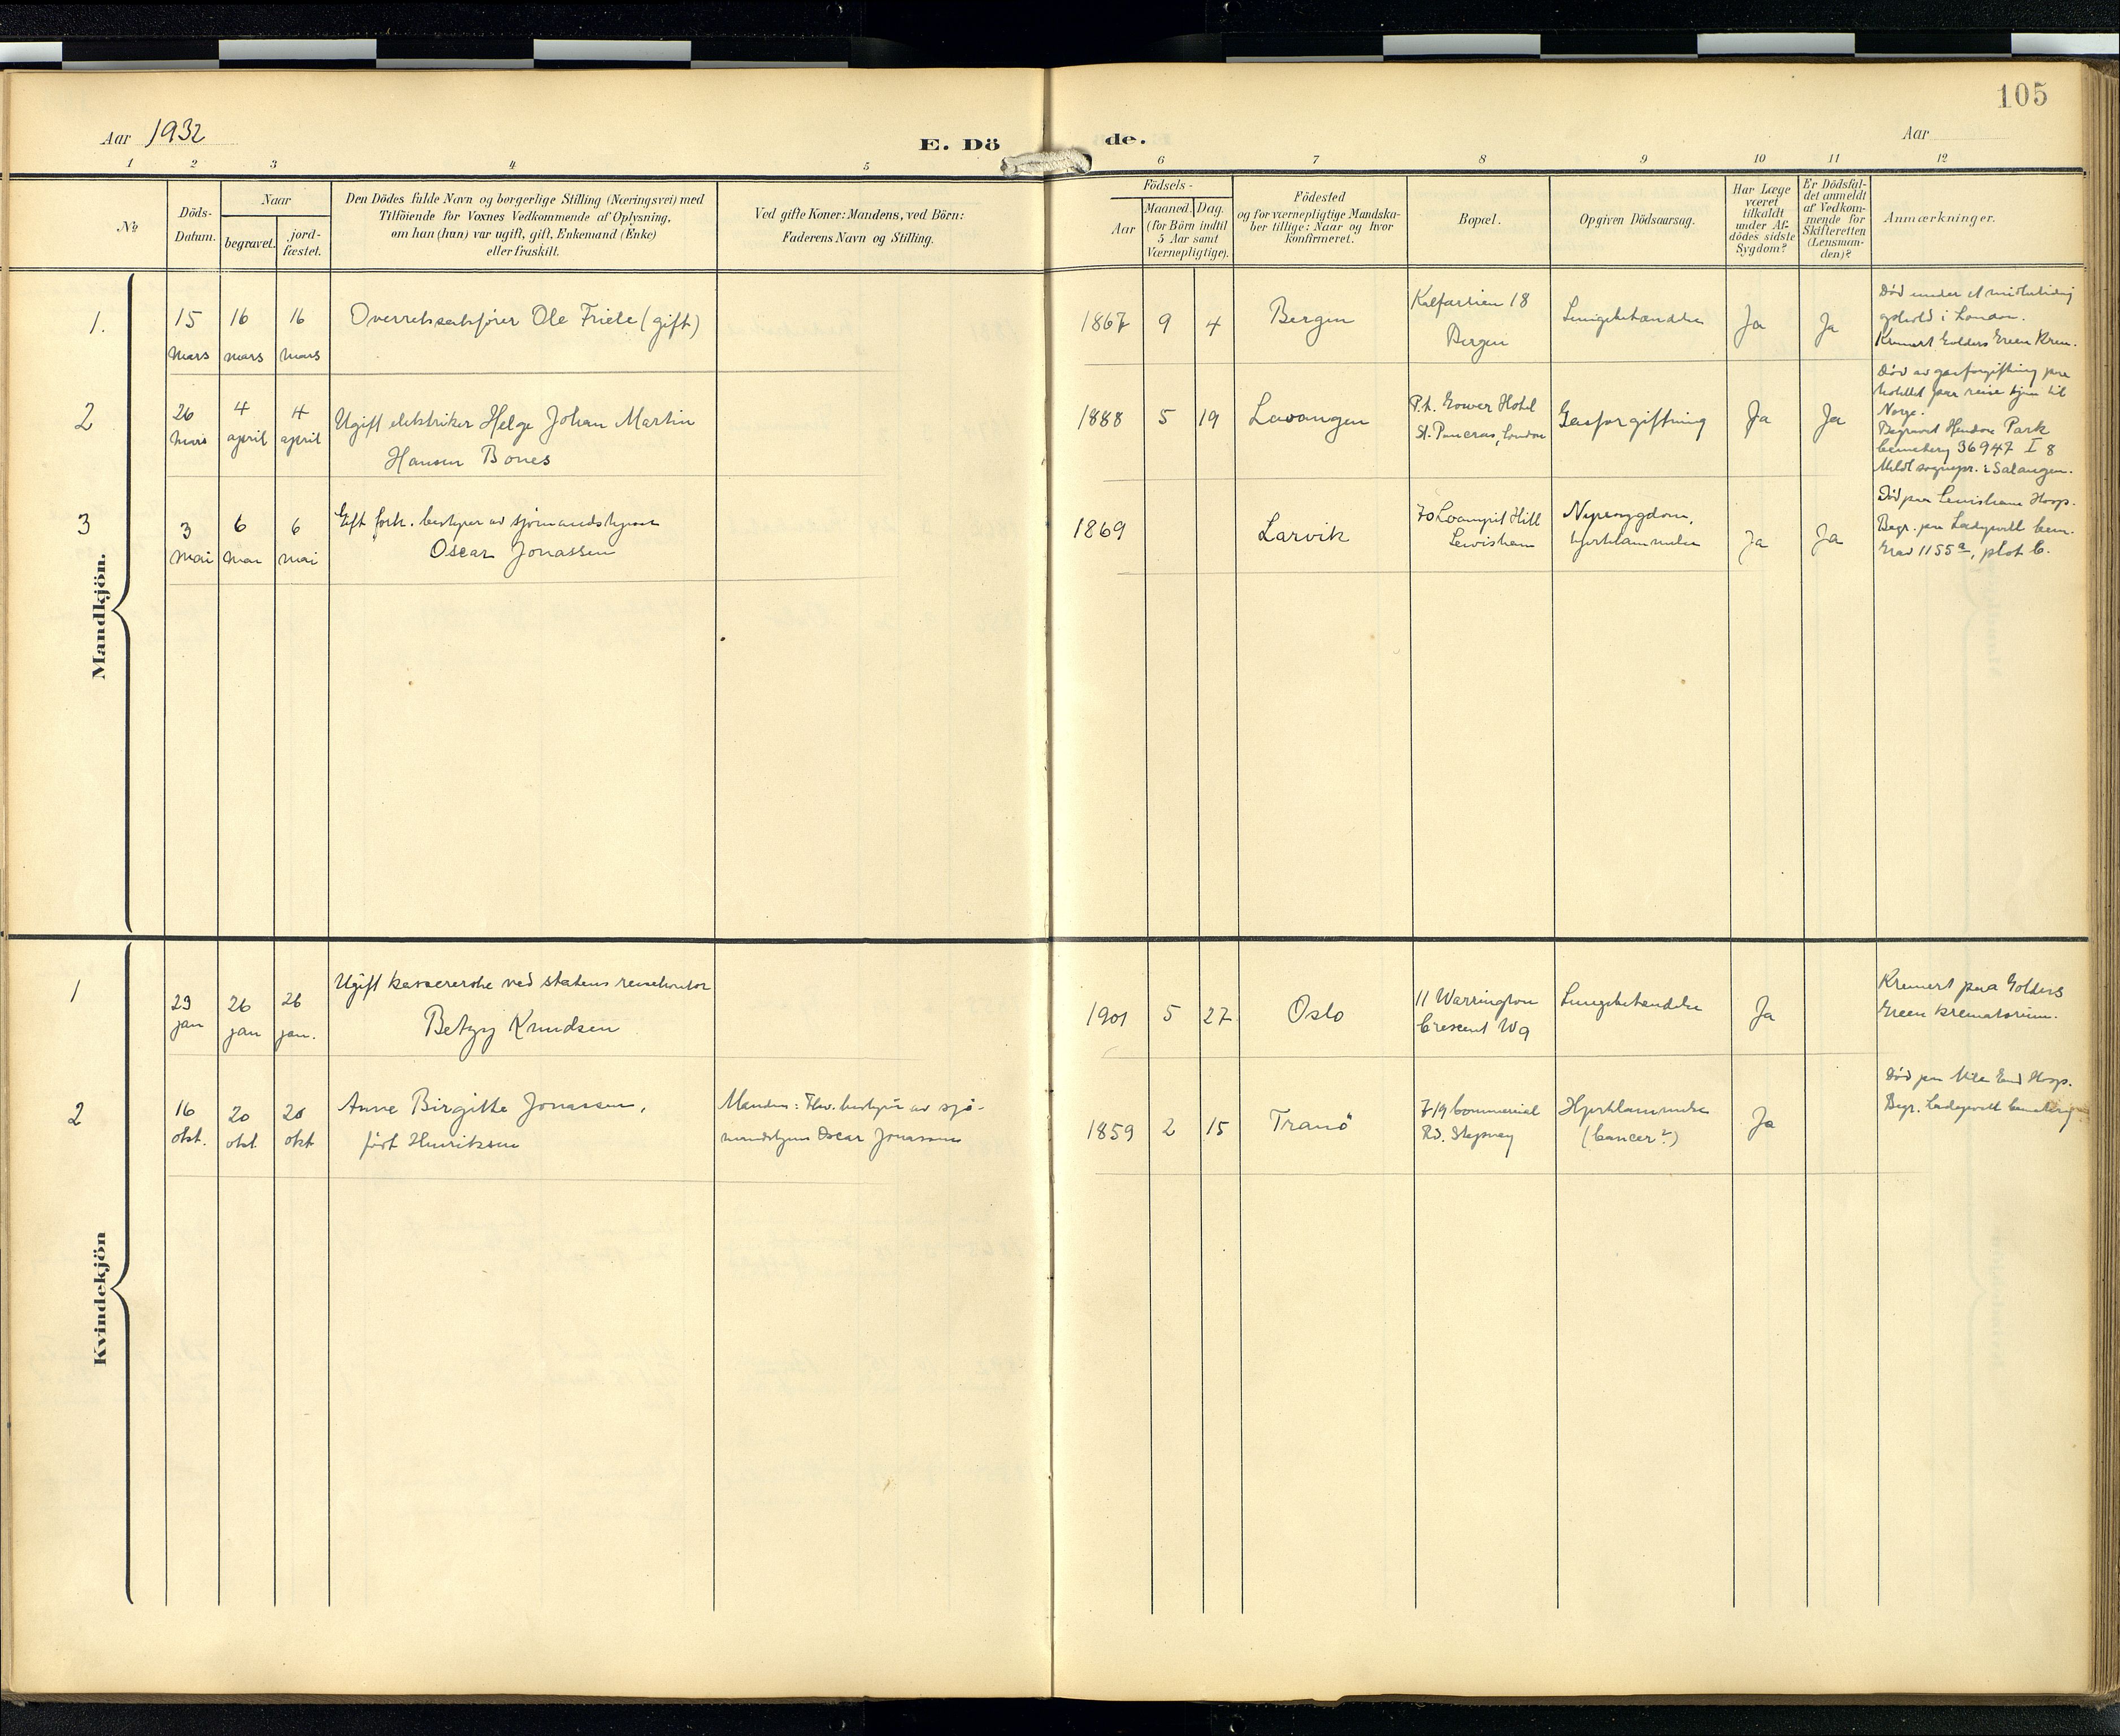 105
Aar 1932
E. Dö
de.
Aar
1 2 3 4 5 6 7 8 9 10 11 12
No
Döds-
Datum.
Naar
begravet.
jord-
fæstet.
Den Dödes fulde Navn og borgerlige Stilling (Næringsvei) med
Tilföiende for Voxnes Vedkommende af Oplysning,
om han (hun) var ugift, gift, Enkemand (Enke)
eller fraskilt.
Ved gifte Koner: Mandens, ved Börn:
Faderens Navn og Stilling.
Födsels-
Aar
Maaned. Dag.
(for Börn indtil
5 Aar samt
Værnepligtige).
Födested
og for værnepligtige Mandska-
ber tillige: Naar og hvor
konfirmeret.
Bopæl.
Opgiven Dödsaarsag.
Har Læge
været
tilkaldt
under Af-
dödes sidste
Sygdom?
Er Dödsfal-
det anmeldt
af Vedkom-
mende for
Skifteretten
(Lensman-
den)?
Anmærkninger.
Mandkjön.
1.
15
mars
16
mars
16
mars
Overretssakfører Ole Friele (gift)
1867 9 4
Bergen
Kalfarlien 18
Bergen
Lungebetændelse
Ja
Ja
Død under et midlertidig
ophold i London.
Kremert Golders Green Krem.
2
26
mars
4
april
4
april
Ugift elektriker Helge Johan Martin
Hansen Bones
1888 5 19
Lavangen
P.t. Gower Hotel
St. Pancras, London
Gasforgiftning
Ja
Ja
Død av gasforgiftning paa
hotellet paa reise hjem til
Norge.
Begravet Hendon Park
Cemetery 36947 I 8
Meldt sognepr. i Salangen.
3
3
mai
6
mai
6
mai
Gift forh. bestyrer av sjømandshjem
Oscar Jonassen
1869
Larvik
70 Loampit Hill
Lewisham
Nyresygdom,
hjertelammelse
Ja
Ja
Død paa Lewisham Hosp.
Begr. paa Ladywell Cem.
Grav 1155a, plot C.
Kvindekjön
1
23
jan
26
jan
26
jan.
Ugift kassererske ved statens reisekontor
Betzy Knudsen
1901 5 27
Oslo
11 Warrington
Crescent W9
Lungebetændelse
Ja
Kremert paa Golders
Green Krematorium.
2
16
okt.
20
okt
20
okt
Anne Birgitte Jonassen,
født Henriksen
Manden: Fhv. bestyrer av sjø-
mandshjem Oscar Jonassen
1859 2 15
Tranö
719 Commercial
Rd. Stepney
Hjertelammelse
(Cancer?)
Ja
Død paa Mile End Hosp.
Begr. Ladywell Cemetery